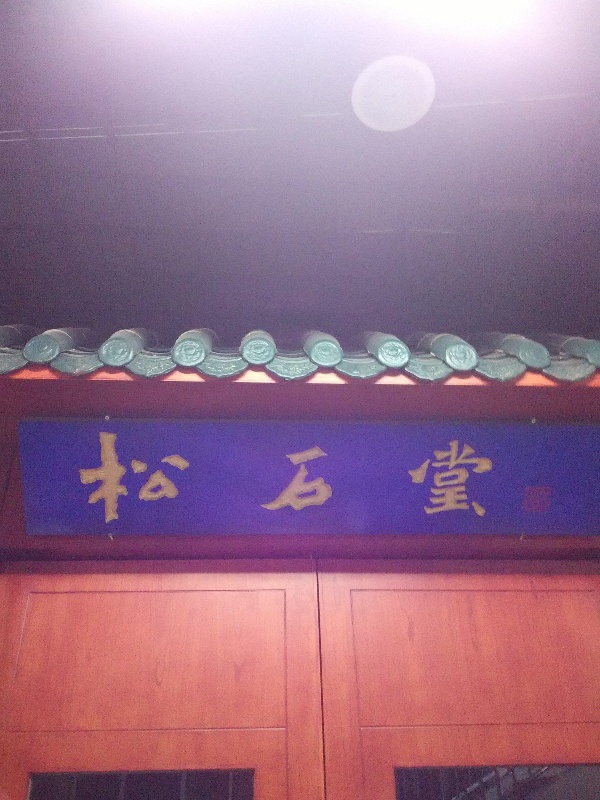 松石堂